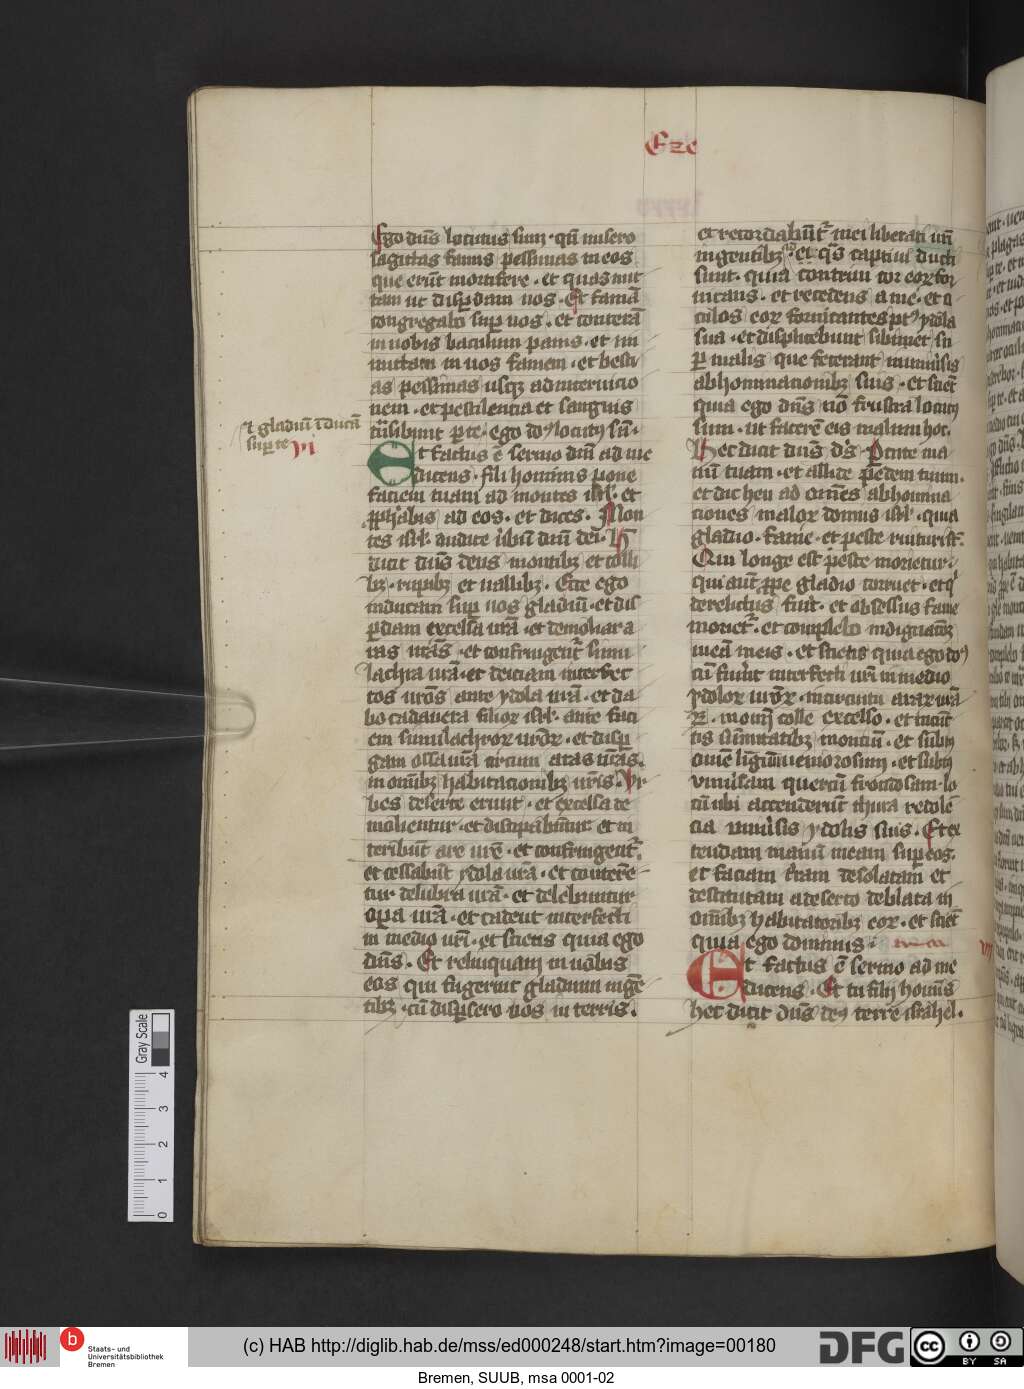 Eze
Ego dn̄s locutus sum · qn̄ misero
sagittas famis pessimas in eos
que erūt mortifere · et quas mit
tam ut disꝑdam uos · Et famē
congregabo suꝑ uos · et conterā
in uobis baculum panis · et im
mittam in uos famem · et besti
as pessimas usqꝫ ad internicio
nem · et pestilentia et sanguis
trāsibunt ꝑ te · ego dn̄s locutꝰ sū ·
et gladiū īducā
suꝑ te
VI
Et factus ē sermo dn̄i ad me
dicens · fili hominis pone
faciem tuam ad montes isrl̄ · et
ꝓph̄abis ad eos · et dices · Mon
tes isrl̄ · audite ūbū dn̄i dei · H
dicit dn̄s deus montibꝫ et colli
bꝫ · rupibꝫ et uallibꝫ · Ecce ego
inducam suꝑ uos gladiū · et dis
ꝑdam excelsa ur̄a · et demoliar a
ras ur̄as · et confringent᷑ simu
lachra ur̄a · et deiciam interfec
tos ur̄os ante ydola ur̄a · et da
bo cadauera filior isrl̄ · ante faci
em simulachror uror · et disꝑ
gam ossa ur̄a circum aras ur̄as ·
in omībꝫ habitacionibꝫ ur̄is · Vr
bes deserte erunt · et excelsa de
molientur · et dissipabūtur · et in
teribūt are ur̄e · et confringent᷑ ·
et cessabūt ydola ur̄a · et contere
tur delubra ur̄a · et delebuntur
oꝑa ur̄a · et cadent interfecti
in medio ur̄i · et scietis quia ego
dn̄s · Et relinquam in uobis
eos qui fugerint gladium in gē
tibꝫ · cū disꝑsero uos in terris ·
et recordabūt᷑ mei liberati ur̄i
in gentibꝫ ad quas captiui ducti
sunt · quia contriui cor eor for
nicans · et recedens a me · et o
culos eor fornicantes pꝰ ydola
sua · et displicebunt sibimet su
ꝑ malis que fecerant in uniūsis
abhominacionibꝫ suis · et scient
quia ego dn̄s nō frustra locutꝰ
sum · ut facerē eis malum hoc ·
Hec dicit dn̄s ds̄ · Percute ma
nū tuam · et allide pedem tuum ·
et dic heu ad om̄es abhomina
ciones malor domus isrl̄ · quia
gladio · fame · et peste ruituri st̄ ·
Qui longe est peste morietur ·
qui aūt ꝓpe gladio corruet · et qi
derelictus fuit · et obsessus fame
moriet᷑ · et complebo indignacōꝫ
meā in eis · et scietis quia ego dn̄s
cū fuīnt interfecti ur̄i in medio
ydolor uror · in circuitu arar ur̄a
ꝝ · in om̄i colle excelso · et in cūc
tis sūmitatibꝫ montiū · et subtꝰ
omē lignū nemorosum · et subtꝰ
uniūsam quercū frondosam · lo
cū ubi accenderūt thura redolē
cia uniūsis ydolis suis · Et ex
tendam manū meam suꝑ eos ·
et faciam t̄ram desolatam et
destitutam a deserto deblata in
om̄ibꝫ habitatoribꝫ eor · et scient
quia ego dominus ·
VII
Et factus ē sermo ad me
dicens · Et tu fili homis
hec dicit dn̄s deꝰ terre israhel ·
Gray Scale
4
3
2
1
0
b
Staats- und
Universitätsbibliothek
Bremen
(c) HAB http://diglib.hab.de/mss/ed000248/start.htm?image=00180
DFG
cc BY SA
Bremen, SUUB, msa 0001-02